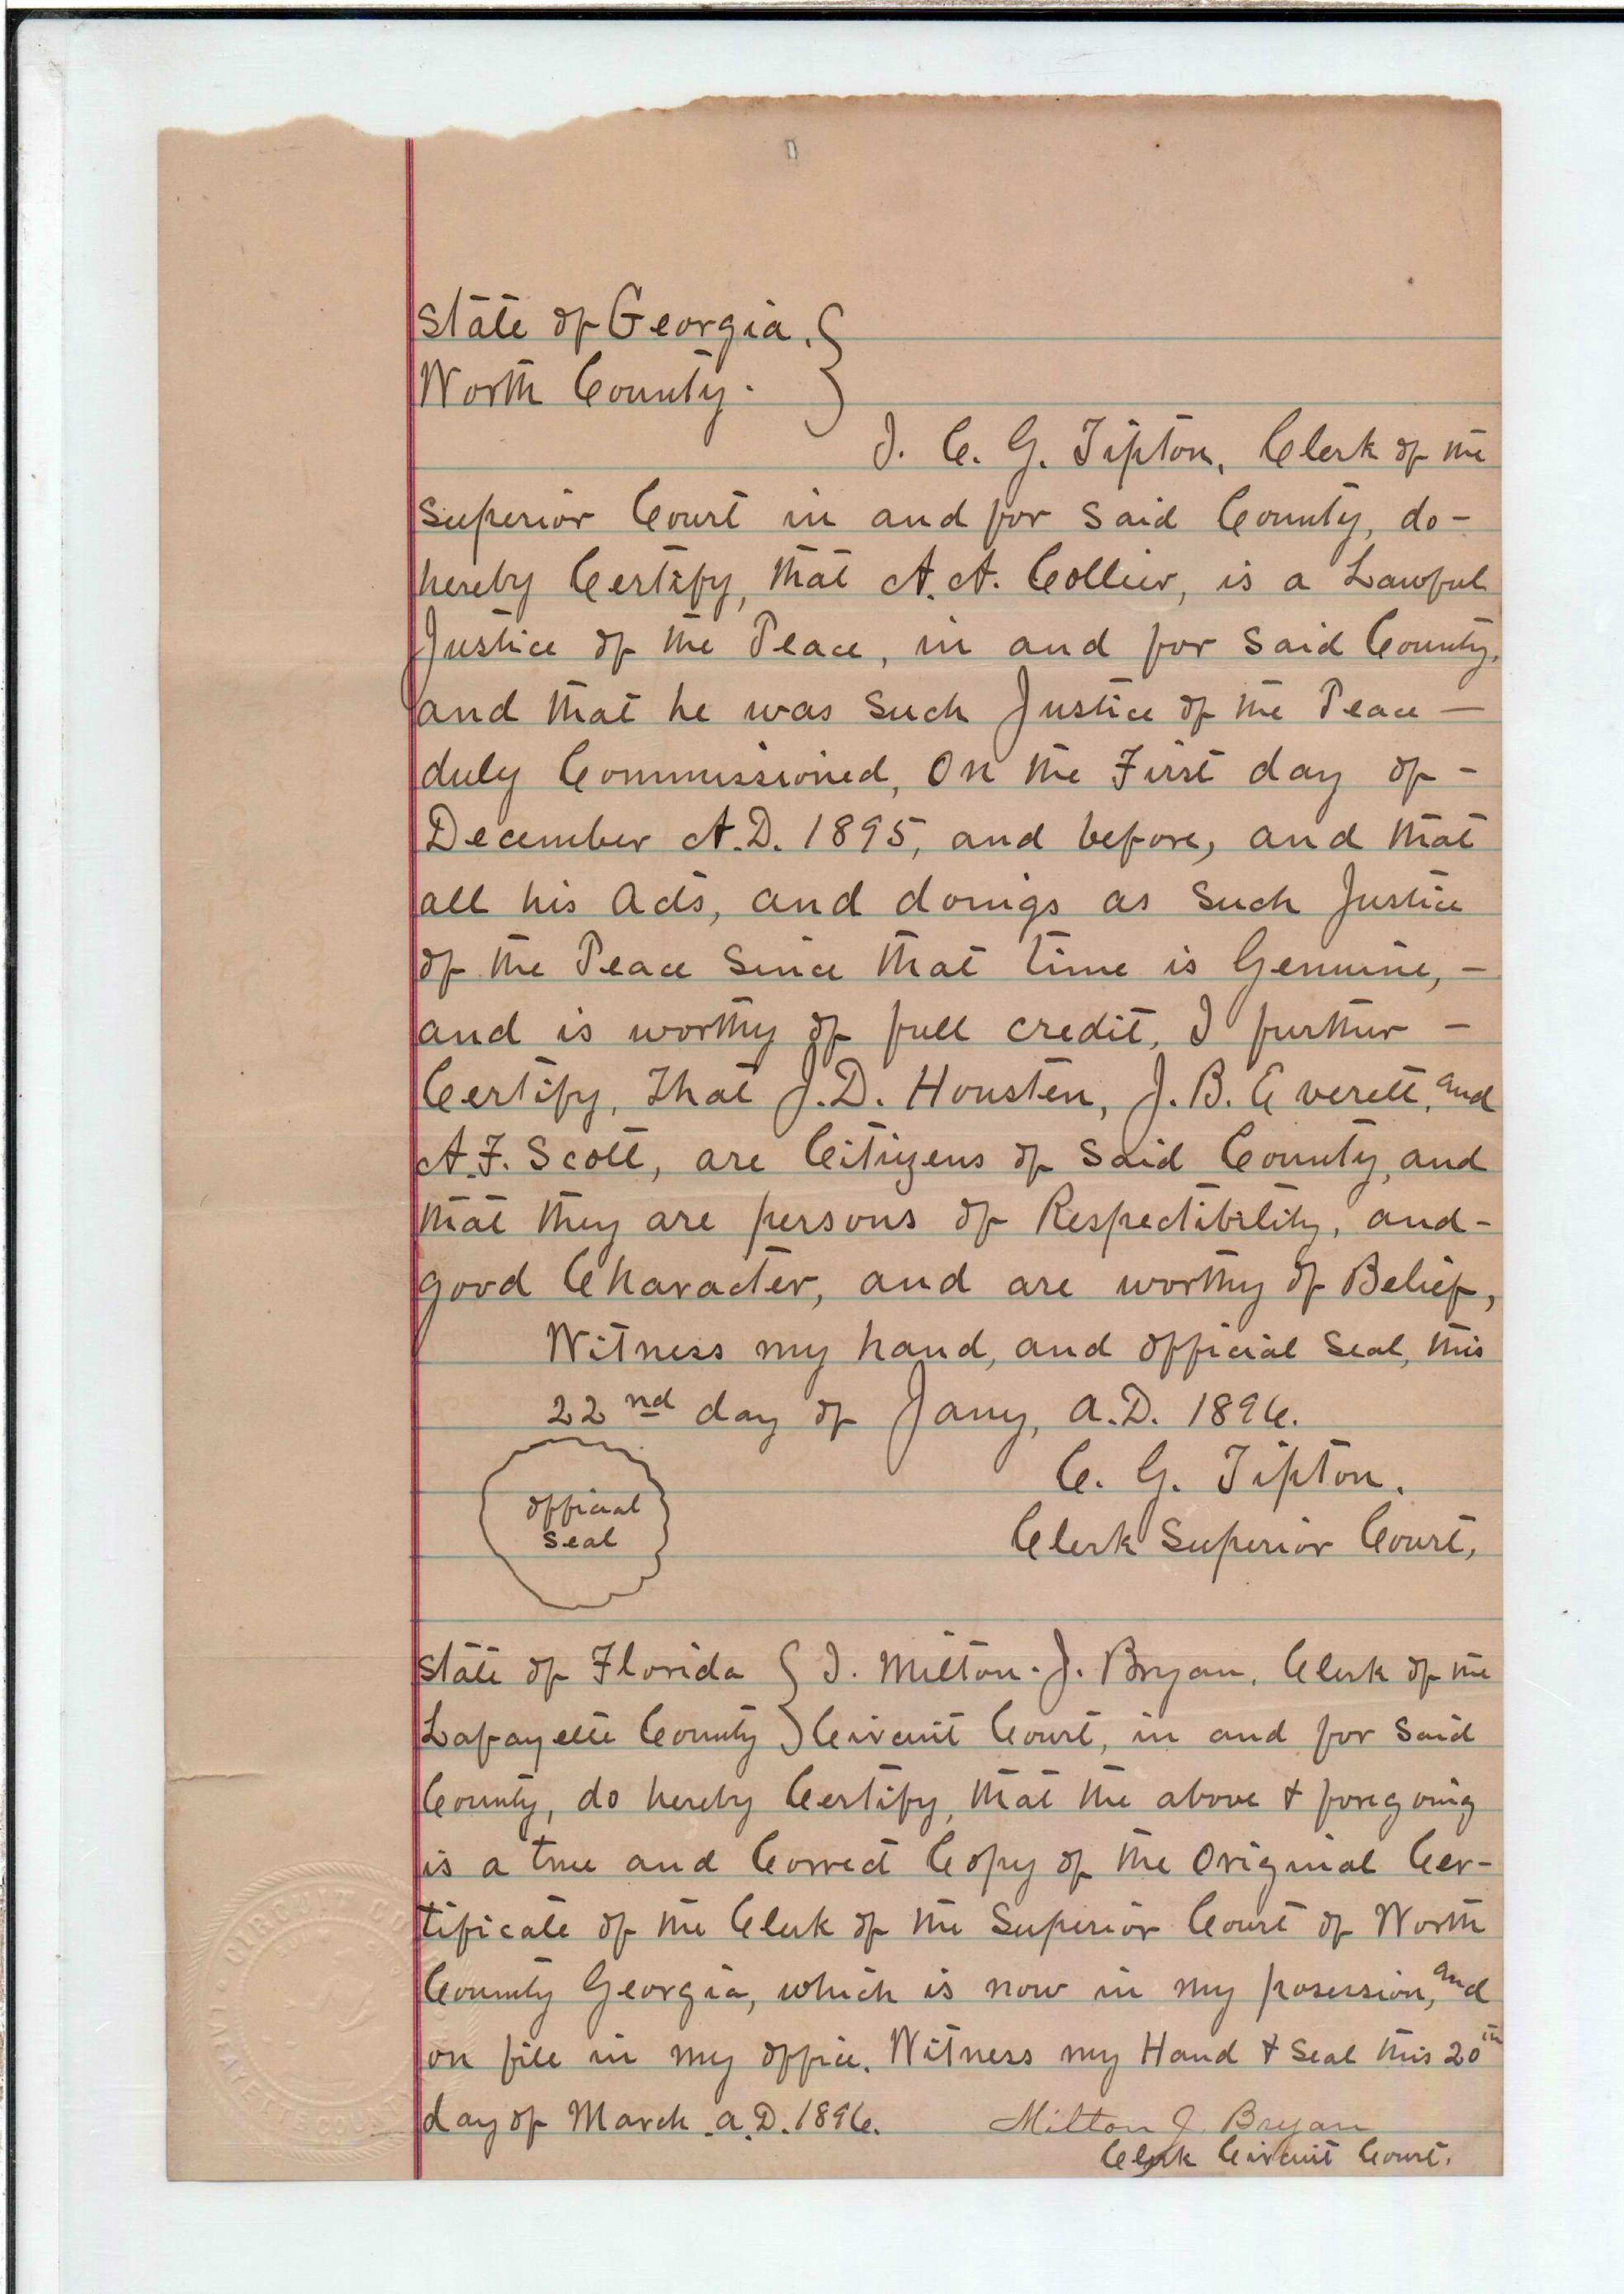 State of Georgia, }
Worth County. }
I. C. G. Tipton, Clerk of the
Superior Court in and for said County, do -
hereby Certify, that A. A. Collier, is a Lawful
Justice of the Peace, in and for said County,
and that he was such Justice of the Peace —
duly Commissioned, On the First day of -
December A.D. 1895, and before, and that
all his Acts, and doings as such Justice
of the Peace since that time is Genuine, -
and is worthy of full credit, I further -
Certify, That J. D. Housten, J. B. Everett, and
A. F. Scott, are Citizens of said County, and
that they are persons of Respectibility, and -
good Character, and are worthy of Belief,
Witness my hand, and official Seal, this
22nd day of Jany, A.D. 1896.
C. G. Tipton.
Official
Seal
Clerk Superior Court,
State of Florida } I. Milton. J. Bryan, Clerk of the
Lafayette County } Circuit Court, in and for said
County, do hereby Certify, that the above & foregoing
is a true and Correct Copy of the Original Cer-
tificate of the Clerk of the Superior Court of Worth
County Georgia, which is now in my posession, and
on file in my office. Witness my Hand & Seal this 20th
day of March A.D. 1896. Milton J. Bryan
Clerk Circuit Court.
CIRCUIT CO
LAFAYETTE COU